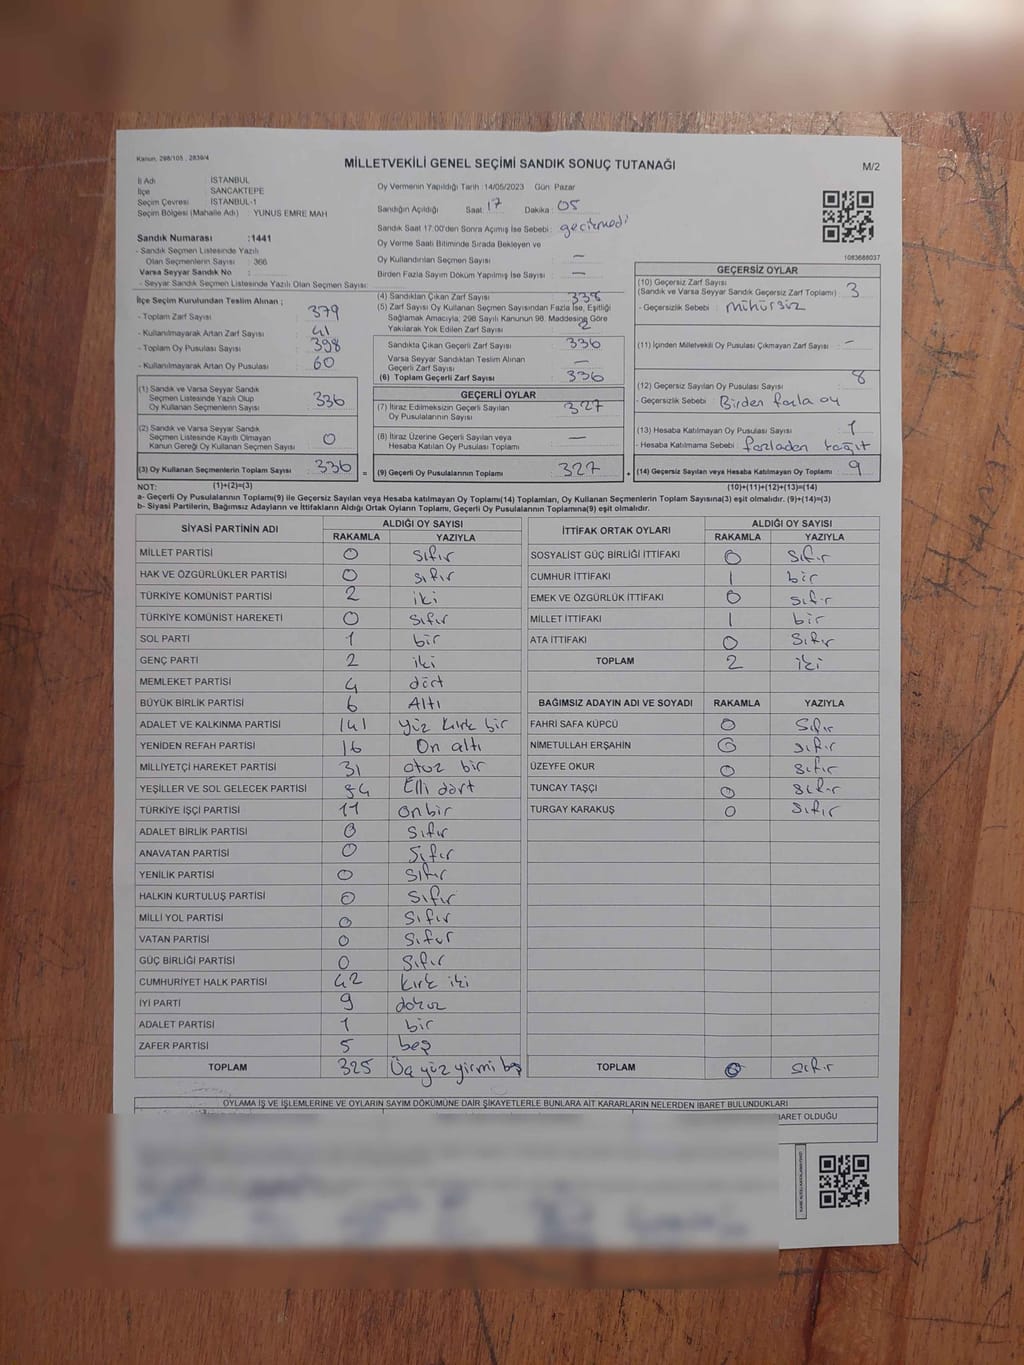 Kanun, 298/105 , 2839/4
MİLLETVEKİLİ GENEL SEÇİMİ SANDIK SONUÇ TUTANAĞI
M/2
İl Adı : İSTANBUL
İlçe : SANCAKTEPE
Seçim Çevresi : İSTANBUL-1
Seçim Bölgesi (Mahalle Adı) YUNUS EMRE MAH
Sandık Numarası :1441
- Sandık Seçmen Listesinde Yazılı
Olan Seçmenlerin Sayısı : 366
Varsa Seyyar Sandık No :
- Seyyar Sandık Seçmen Listesinde Yazılı Olan Seçmen Sayısı:
Oy Vermenin Yapıldığı Tarih :14/05/2023 Gün: Pazar
Sandığın Açıldığı Saat: 17 Dakika: 05
Sandık Saat 17:00'den Sonra Açılmış İse Sebebi: gecikmedi
Oy Verme Saati Bitiminde Sırada Bekleyen ve
Oy Kullandırılan Seçmen Sayısı : —
Birden Fazla Sayım Döküm Yapılmış İse Sayısı : —
1083688037
İlçe Seçim Kurulundan Teslim Alınan ;
- Toplam Zarf Sayısı : 379
- Kullanılmayarak Artan Zarf Sayısı : 41
- Toplam Oy Pusulası Sayısı : 398
- Kullanılmayarak Artan Oy Pusulası : 60
(1) Sandık ve Varsa Seyyar Sandık
Seçmen Listesinde Yazılı Olup
Oy Kullanan Seçmenlerin Sayısı : 336
(2) Sandık ve Varsa Seyyar Sandık
Seçmen Listesinde Kayıtlı Olmayan
Kanun Gereği Oy Kullanan Seçmen Sayısı : 0
(3) Oy Kullanan Seçmenlerin Toplam Sayısı : 336 =
(4) Sandıktan Çıkan Zarf Sayısı : 338
(5) Zarf Sayısı Oy Kullanan Seçmen Sayısından Fazla İse, Eşitliği
Sağlamak Amacıyla; 298 Sayılı Kanunun 98. Maddesine Göre
Yakılarak Yok Edilen Zarf Sayısı : 2
Sandıkta Çıkan Geçerli Zarf Sayısı : 336
Varsa Seyyar Sandıktan Teslim Alınan
Geçerli Zarf Sayısı : —
(6) Toplam Geçerli Zarf Sayısı : 336
GEÇERLİ OYLAR
(7) İtiraz Edilmeksizin Geçerli Sayılan
Oy Pusulalarının Sayısı : 327
(8) İtiraz Üzerine Geçerli Sayılan veya
Hesaba Katılan Oy Pusulası Toplamı : —
(9) Geçerli Oy Pusulalarının Toplamı : 327 +
GEÇERSİZ OYLAR
(10) Geçersiz Zarf Sayısı
(Sandık ve Varsa Seyyar Sandık Geçersiz Zarf Toplamı) : 3
- Geçersizlik Sebebi : mühürsüz
(11) İçinden Milletvekili Oy Pusulası Çıkmayan Zarf Sayısı : -
(12) Geçersiz Sayılan Oy Pusulası Sayısı : 8
- Geçersizlik Sebebi : Birden fazla oy
(13) Hesaba Katılmayan Oy Pusulası Sayısı : 1
- Hesaba Katılmama Sebebi : fazladan kağıt
(14) Geçersiz Sayılan veya Hesaba Katılmayan Oy Toplamı : 9
NOT: (1)+(2)=(3)
(10)+(11)+(12)+(13)=(14)
a- Geçerli Oy Pusulalarının Toplamı(9) ile Geçersiz Sayılan veya Hesaba katılmayan Oy Toplamı(14) Toplamları, Oy Kullanan Seçmenlerin Toplam Sayısına(3) eşit olmalıdır. (9)+(14)=(3)
b- Siyasi Partilerin, Bağımsız Adayların ve İttifakların Aldığı Ortak Oyların Toplamı, Geçerli Oy Pusulalarının Toplamına(9) eşit olmalıdır.
SİYASİ PARTİNİN ADI ALDIĞI OY SAYISI
RAKAMLA YAZIYLA
MİLLET PARTİSİ 0 sıfır
HAK VE ÖZGÜRLÜKLER PARTİSİ 0 sıfır
TÜRKİYE KOMÜNİST PARTİSİ 2 iki
TÜRKİYE KOMÜNİST HAREKETİ 0 sıfır
SOL PARTİ 1 bir
GENÇ PARTİ 2 iki
MEMLEKET PARTİSİ 4 dört
BÜYÜK BİRLİK PARTİSİ 6 Altı
ADALET VE KALKINMA PARTİSİ 141 yüz kırk bir
YENİDEN REFAH PARTİSİ 16 On altı
MİLLİYETÇİ HAREKET PARTİSİ 31 otuz bir
YEŞİLLER VE SOL GELECEK PARTİSİ 54 Elli dört
TÜRKİYE İŞÇİ PARTİSİ 11 on bir
ADALET BİRLİK PARTİSİ 0 sıfır
ANAVATAN PARTİSİ 0 Sıfır
YENİLİK PARTİSİ 0 sıfır
HALKIN KURTULUŞ PARTİSİ 0 sıfır
MİLLİ YOL PARTİSİ 0 sıfır
VATAN PARTİSİ 0 sıfır
GÜÇ BİRLİĞİ PARTİSİ 0 sıfır
CUMHURİYET HALK PARTİSİ 42 kırk iki
İYİ PARTİ 9 dokuz
ADALET PARTİSİ 1 bir
ZAFER PARTİSİ 5 beş
TOPLAM 325 Üç yüz yirmi beş
İTTİFAK ORTAK OYLARI ALDIĞI OY SAYISI
RAKAMLA YAZIYLA
SOSYALİST GÜÇ BİRLİĞİ İTTİFAKI 0 sıfır
CUMHUR İTTİFAKI 1 bir
EMEK VE ÖZGÜRLÜK İTTİFAKI 0 sıfır
MİLLET İTTİFAKI 1 bir
ATA İTTİFAKI 0 sıfır
TOPLAM 2 iki
BAĞIMSIZ ADAYIN ADI VE SOYADI RAKAMLA YAZIYLA
FAHRİ SAFA KÜPCÜ 0 sıfır
NİMETULLAH ERŞAHİN 0 sıfır
ÜZEYFE OKUR 0 sıfır
TUNCAY TAŞÇI 0 sıfır
TURGAY KARAKUŞ 0 sıfır
TOPLAM 0 sıfır
OYLAMA İŞ VE İŞLEMLERİNE VE OYLARIN SAYIM DÖKÜMÜNE DAİR ŞİKAYETLERLE BUNLARA AİT KARARLARIN NELERDEN İBARET BULUNDUKLARI
BARET OLDUĞU